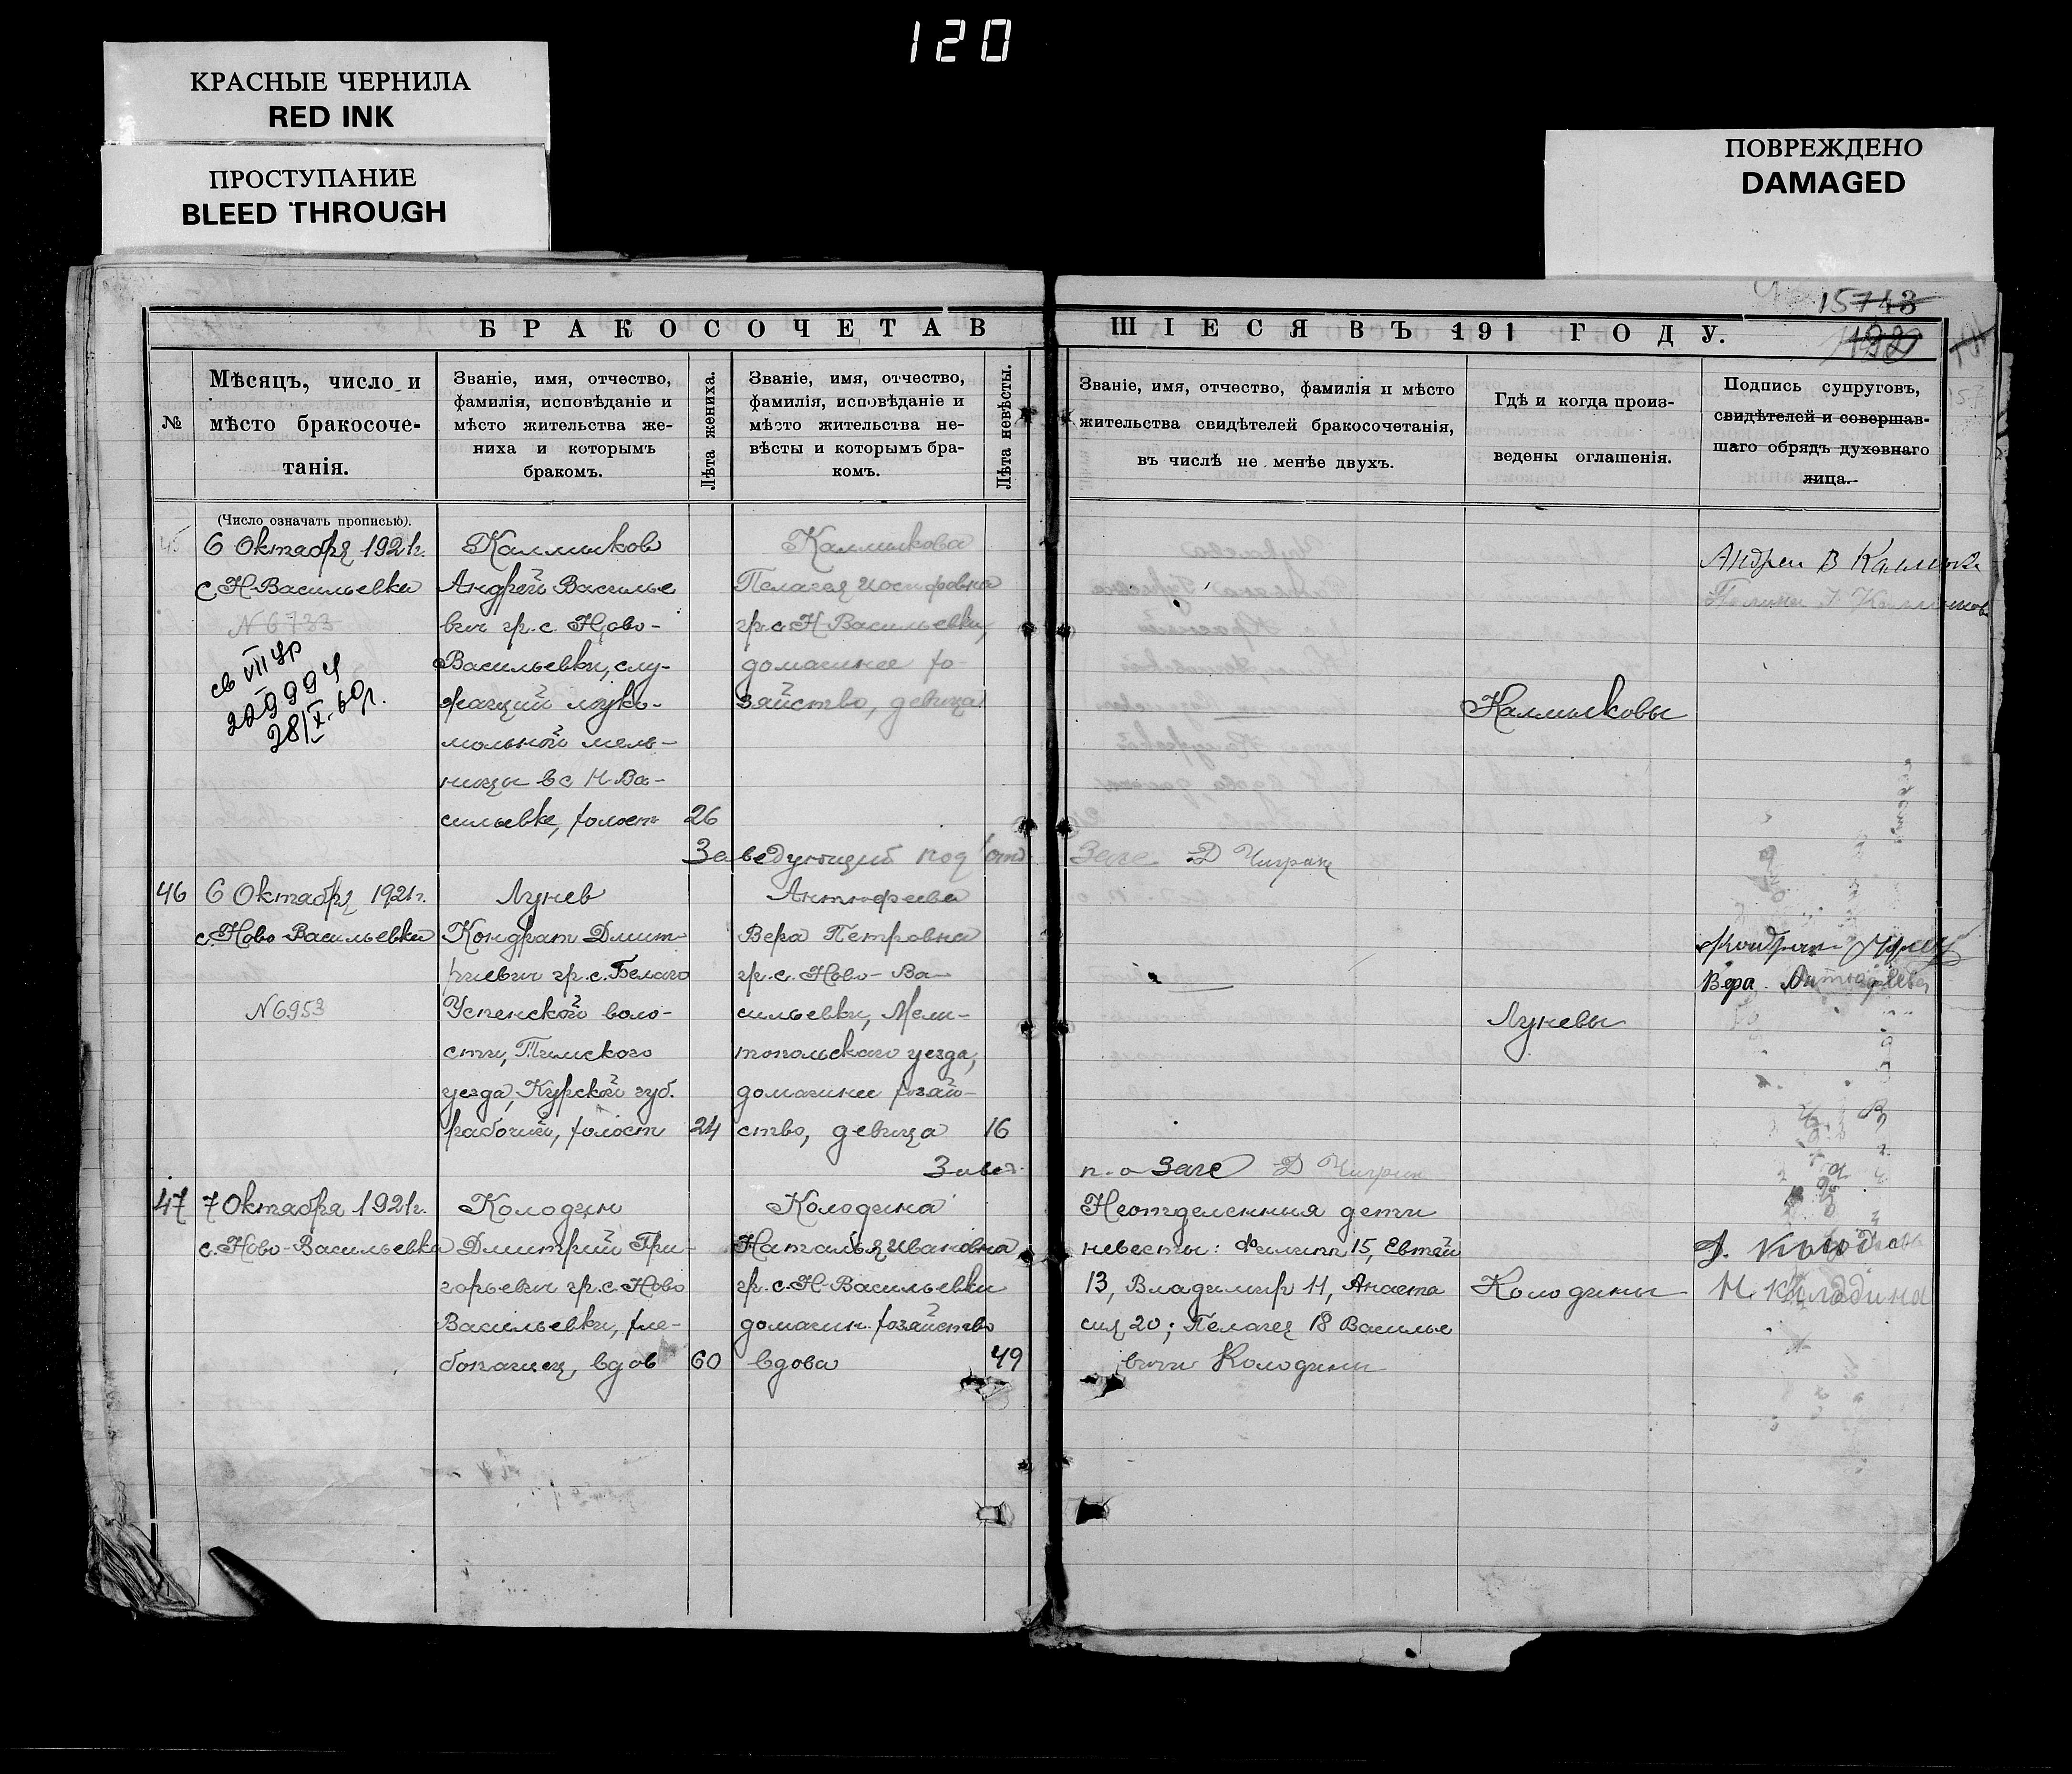 120
КРАСНЫЕ ЧЕРНИЛА
RED INK
ПРОСТУПАНИЕ
BLEED THROUGH
ПОВРЕЖДЕНО
DAMAGED
15743
БРАКОСОЧЕТАВ
ШІЕСЯ ВЪ 191 ГОДУ.
№
Мѣсяцъ, число и
мѣсто бракосоче-
танія.
Званіе, имя, отчество,
фамилія, исповѣданіе и
мѣсто жительства же-
ниха и которымъ
бракомъ.
Лѣта жениха.
Званіе, имя, отчество,
фамилія, исповѣданіе и
мѣсто жительства не-
вѣсты и которымъ бра-
комъ.
Лѣта невѣсты.
Званіе, имя, отчество, фамилія и мѣсто
жительства свидѣтелей бракосочетанія,
въ числѣ не менѣе двухъ.
Гдѣ и когда произ-
ведены оглашенія.
Подпись супруговъ,
свидѣтелей и совершав-
шаго обрядъ духовнаго
лица.
(Число означать прописью).
6 Октября 1921г.
с Н-Васильевка
N 6733
св VII ур
229994
28/X-60г.
Калмыков
Андрей Василье
вич гр. с. Ново-
Васильевки, слу-
жащий муко-
мольной мель-
ницы в с Н-Ва-
сильевке, холост
26
Калмыкова
Пелагея Иосифовна
гр. с Н Васильевки,
домашнее хо-
зяйство, девица
Калмыковы
Андрей В Калмыков
Заведующий под'отд
Загс Д Чигрин
46
6 Октября 1921г.
с. Ново-Васильевка
N 6953
Лунев
Кондрат Дмит
риевич гр. с. Белаго
Успенской воло-
сти, Тимского
уезда, Курской губ.
рабочий, холост
24
Антюфеева
Вера Петровна
гр. с. Ново-Ва-
сильевки, Мели-
топольскаго уезда,
домашнее хозяй-
ство, девица
16
Луневы
Кондрат Лунев
Вера Антюфеева
Завед.
п-о Загс Д Чигрин
47
7 Октября 1921г.
с. Ново-Васильевка
Колодин
Дмитрий Гри-
горьевич гр. с. Ново
Васильевки, хле-
бопашец, вдов
60
Колодина
Наталья Ивановна
гр. с. Н-Васильевки
домашн. хозяйство
вдова
49
Неотделенныя дети
невесты: Филипп 15, Евтей
13, Владимир 11, Анаста
сия 20; Пелагея 18 Василье
вичи Колодины
Колодины
Н. Колодина